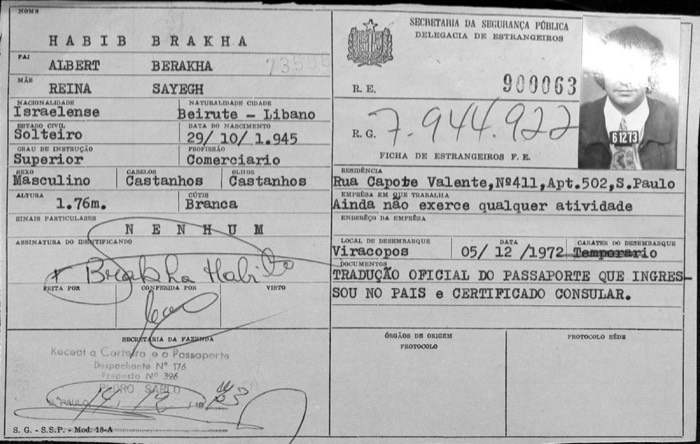 NOME
HABIB BRAKHA
PAI
ALBERT BERAKHA
MÃE
REINA SAYEGH
NACIONALIDADE NATURALIDADE CIDADE
Israelense Beirute - Libano
ESTADO CIVIL DATA DO NASCIMENTO
Solteiro 29/10/1.945
GRAU DE INSTRUÇÃO PROFISSÃO
Superior Comerciario
SEXO CABELOS OLHOS
Masculino Castanhos Castanhos
ALTURA CÚTIS
1.76m. Branca
SINAIS PARTICULARES
NENHUM
ASSINATURA DO IDENTIFICANDO
Brakha Habib
FEITA POR CONFERIDA POR VISTO
SECRETARIA DA FAZENDA
Recebi a Carteira e o Passaporte
Despachante Nº 176
Preposto Nº 396
PEDRO
S. G. - S.S.P. - Mod. 18-A
SECRETARIA DA SEGURANÇA PÚBLICA
DELEGACIA DE ESTRANGEIROS
R. E. 900063
R. G. 7.944.922
FICHA DE ESTRANGEIROS F. E.
61273
RESIDÊNCIA
Rua Capote Valente,Nº411,Apt.502,S.Paulo
EMPRÊSA EM QUE TRABALHA
Ainda não exerce qualquer atividade
ENDERÊÇO DA EMPRÊSA
LOCAL DE DESEMBARQUE DATA CARATER DO DESEMBARQUE
Viracopos 05/12/1972 Temporario
DOCUMENTOS
TRADUÇÃO OFICIAL DO PASSAPORTE QUE INGRES-
SOU NO PAIS e CERTIFICADO CONSULAR.
ÓRGÃOS DE ORIGEM PROTOCOLO RÊDE
PROTOCOLO